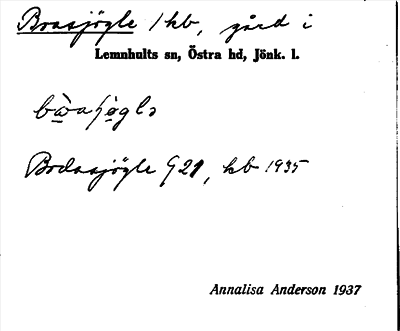 Brasjögle /kb, gård i
Lemnhults sn, Östra hd, Jönk. l.
Bodasjögle G21, kb 1935
Annalisa Anderson 1937